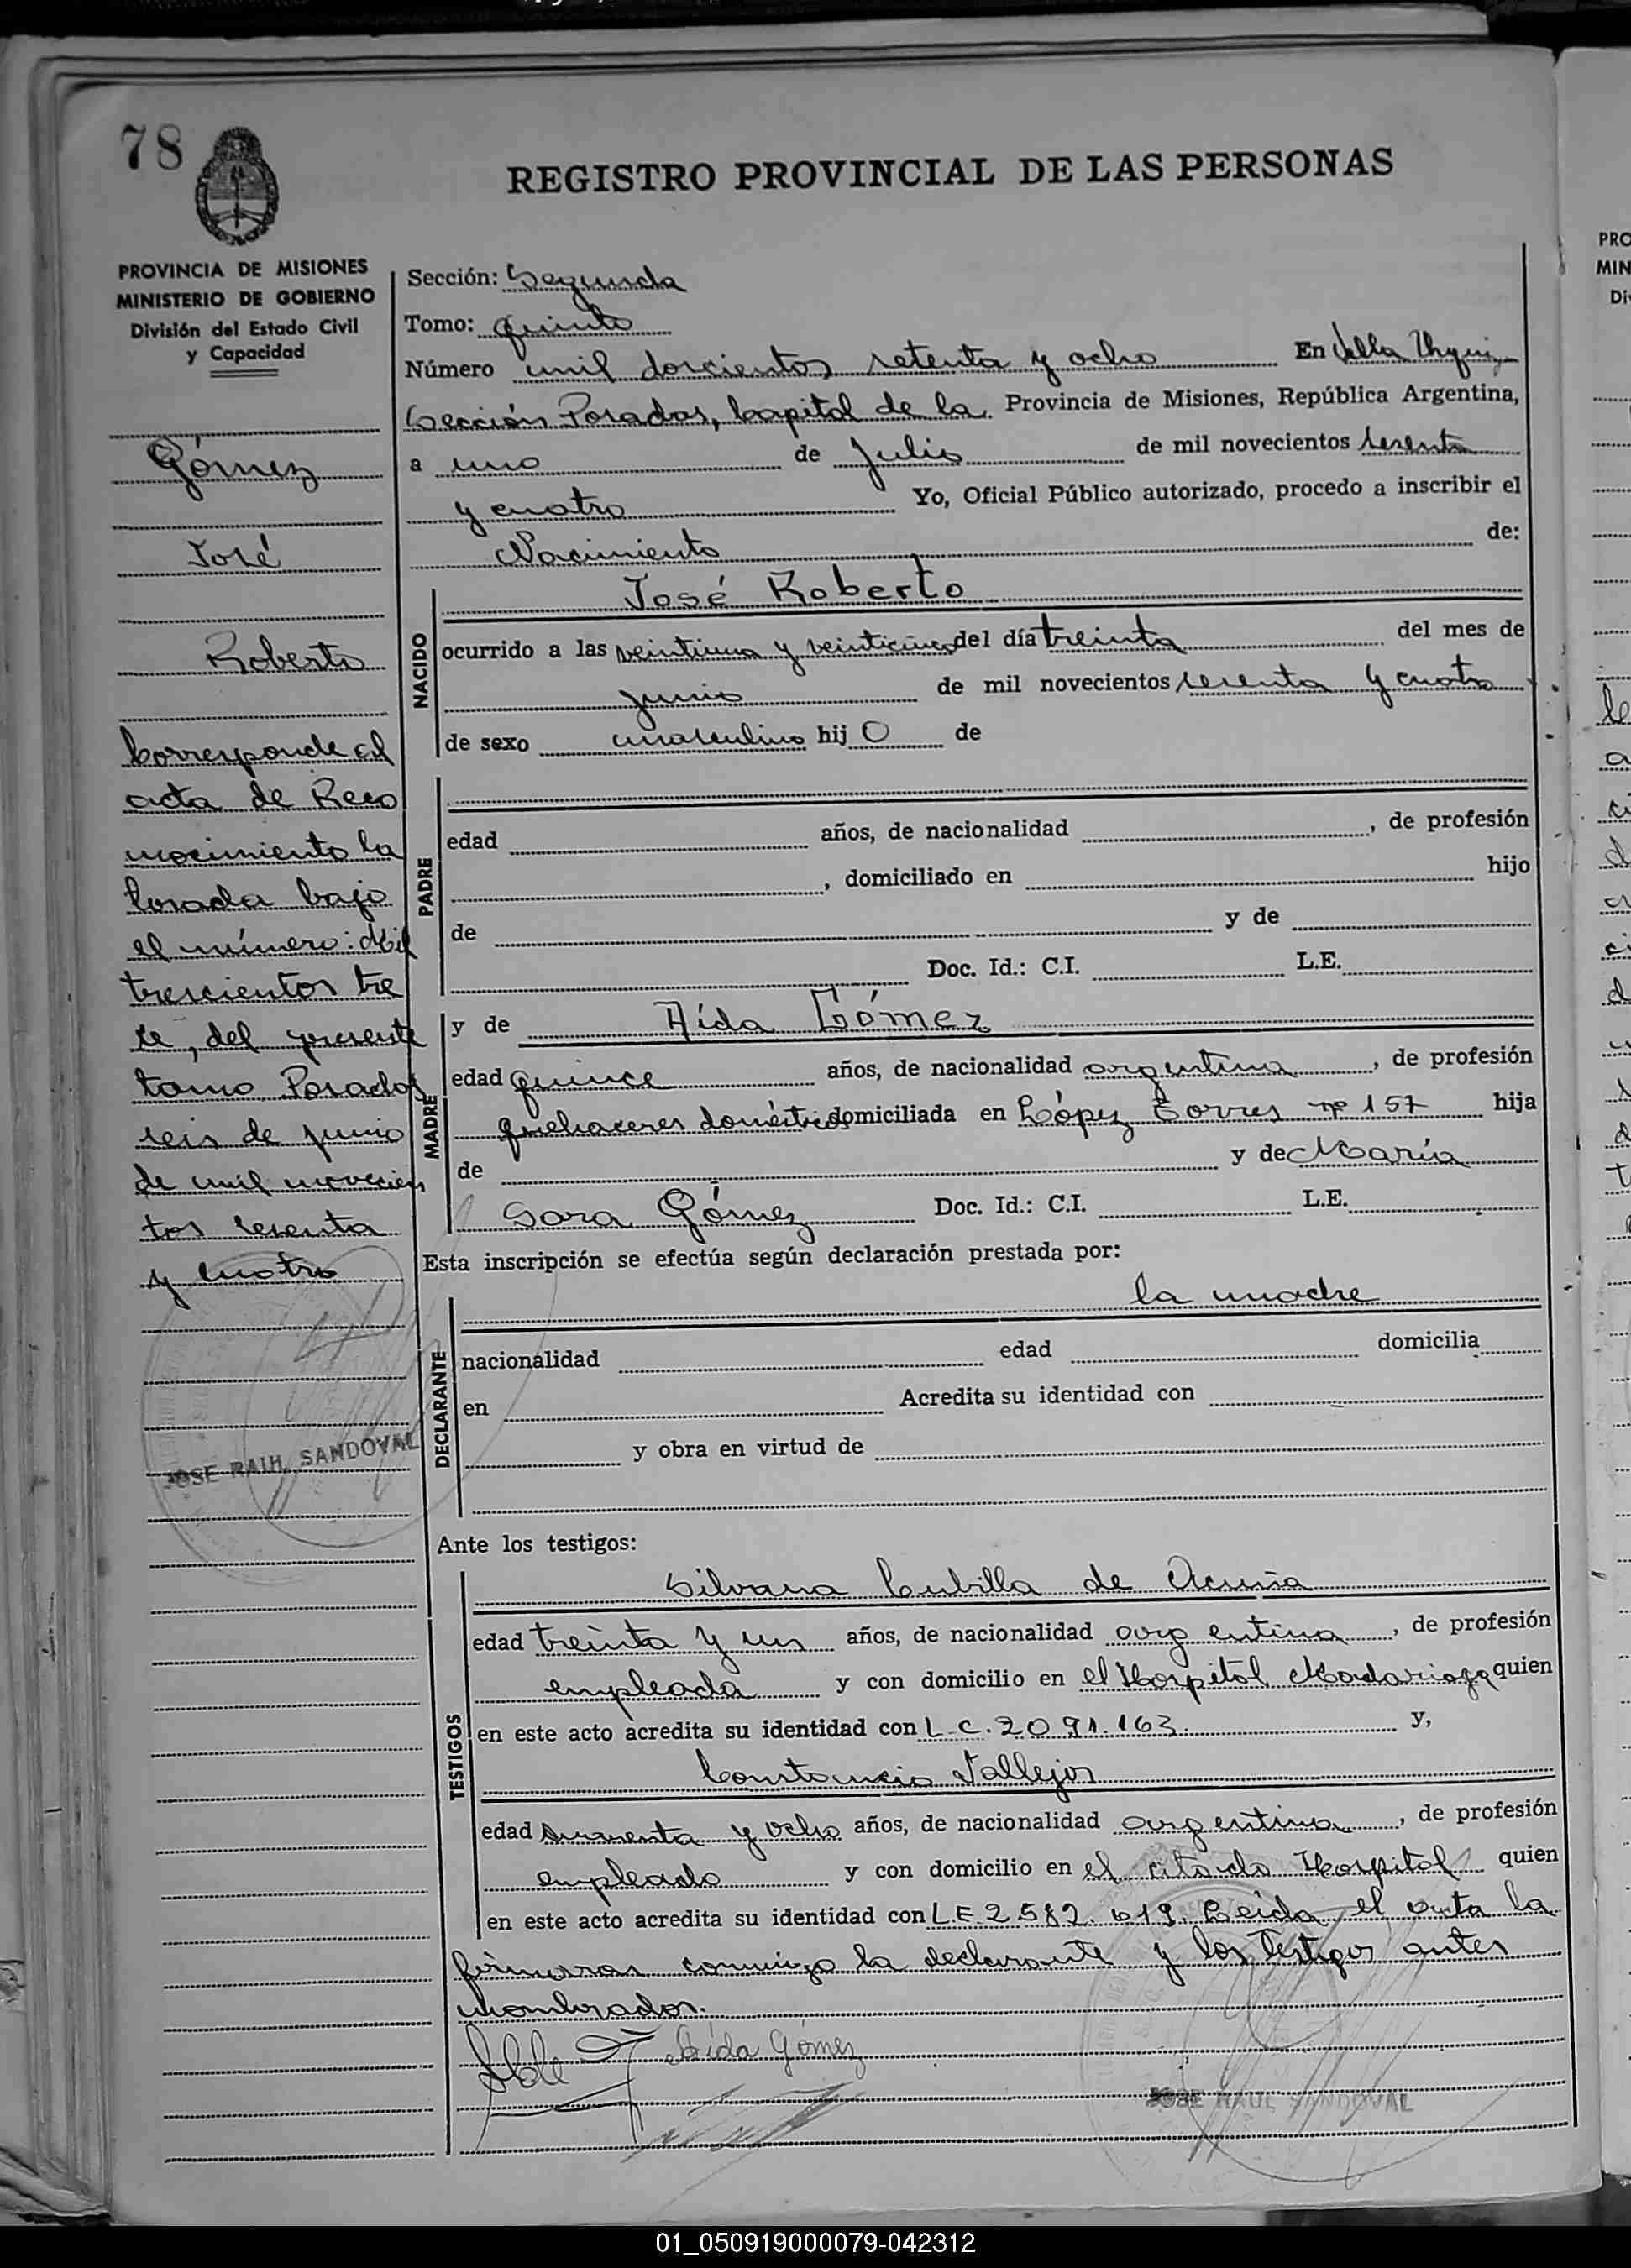 78
REGISTRO PROVINCIAL DE LAS PERSONAS
PROVINCIA DE MISIONES
MINISTERIO DE GOBIERNO
División del Estado Civil
y Capacidad
Gómez
José
Roberto
Corresponde al
acta de Reco
nocimiento la
brada bajo
el número: Mil
trescientos
te, del presente
tomo Posadas
seis de junio
de mil novecien
tos sesenta
y cuatro
JOSE RAUL SANDOVAL
Sección: Segunda
Tomo: quinto
Número mil doscientos setenta y ocho En Villa Urquiza
Sección Posadas, Capital de la Provincia de Misiones, República Argentina,
a uno de Julio de mil novecientos sesenta
y cuatro Yo, Oficial Público autorizado, procedo a inscribir el
Nacimiento de:
NACIDO
José Roberto
ocurrido a las veintiuna y veinticinco del día treinta del mes de
junio de mil novecientos sesenta y cuatro
de sexo masculino hij O de
PADRE
edad años, de nacionalidad , de profesión
, domiciliado en hijo
de y de
Doc. Id.: C.I. L.E.
MADRE
y de Aída Gómez
edad quince años, de nacionalidad argentina , de profesión
quehaceres domésticos domiciliada en López Torres nº 157 hija
de y de María
Sara Gómez Doc. Id.: C.I. L.E.
Esta inscripción se efectúa según declaración prestada por:
DECLARANTE
la madre
nacionalidad edad domicilia
en Acredita su identidad con
y obra en virtud de
Ante los testigos:
TESTIGOS
Silvana Cubilla de Acuña
edad treinta y un años, de nacionalidad argentina , de profesión
empleada y con domicilio en el Hospital Madariaga quien
en este acto acredita su identidad con L.C. 2091.163. y,
Constancio Vallejos
edad y ocho años, de nacionalidad argentina , de profesión
empleado y con domicilio en el citado Hospital quien
en este acto acredita su identidad con L.E. 2582.619. Leida el acta la
firmaron conmigo la declarante y los testigos antes
nombrados.
Aída Gómez
JOSE RAUL SANDOVAL
PRO
MIN
Di
01_050919000079-042312